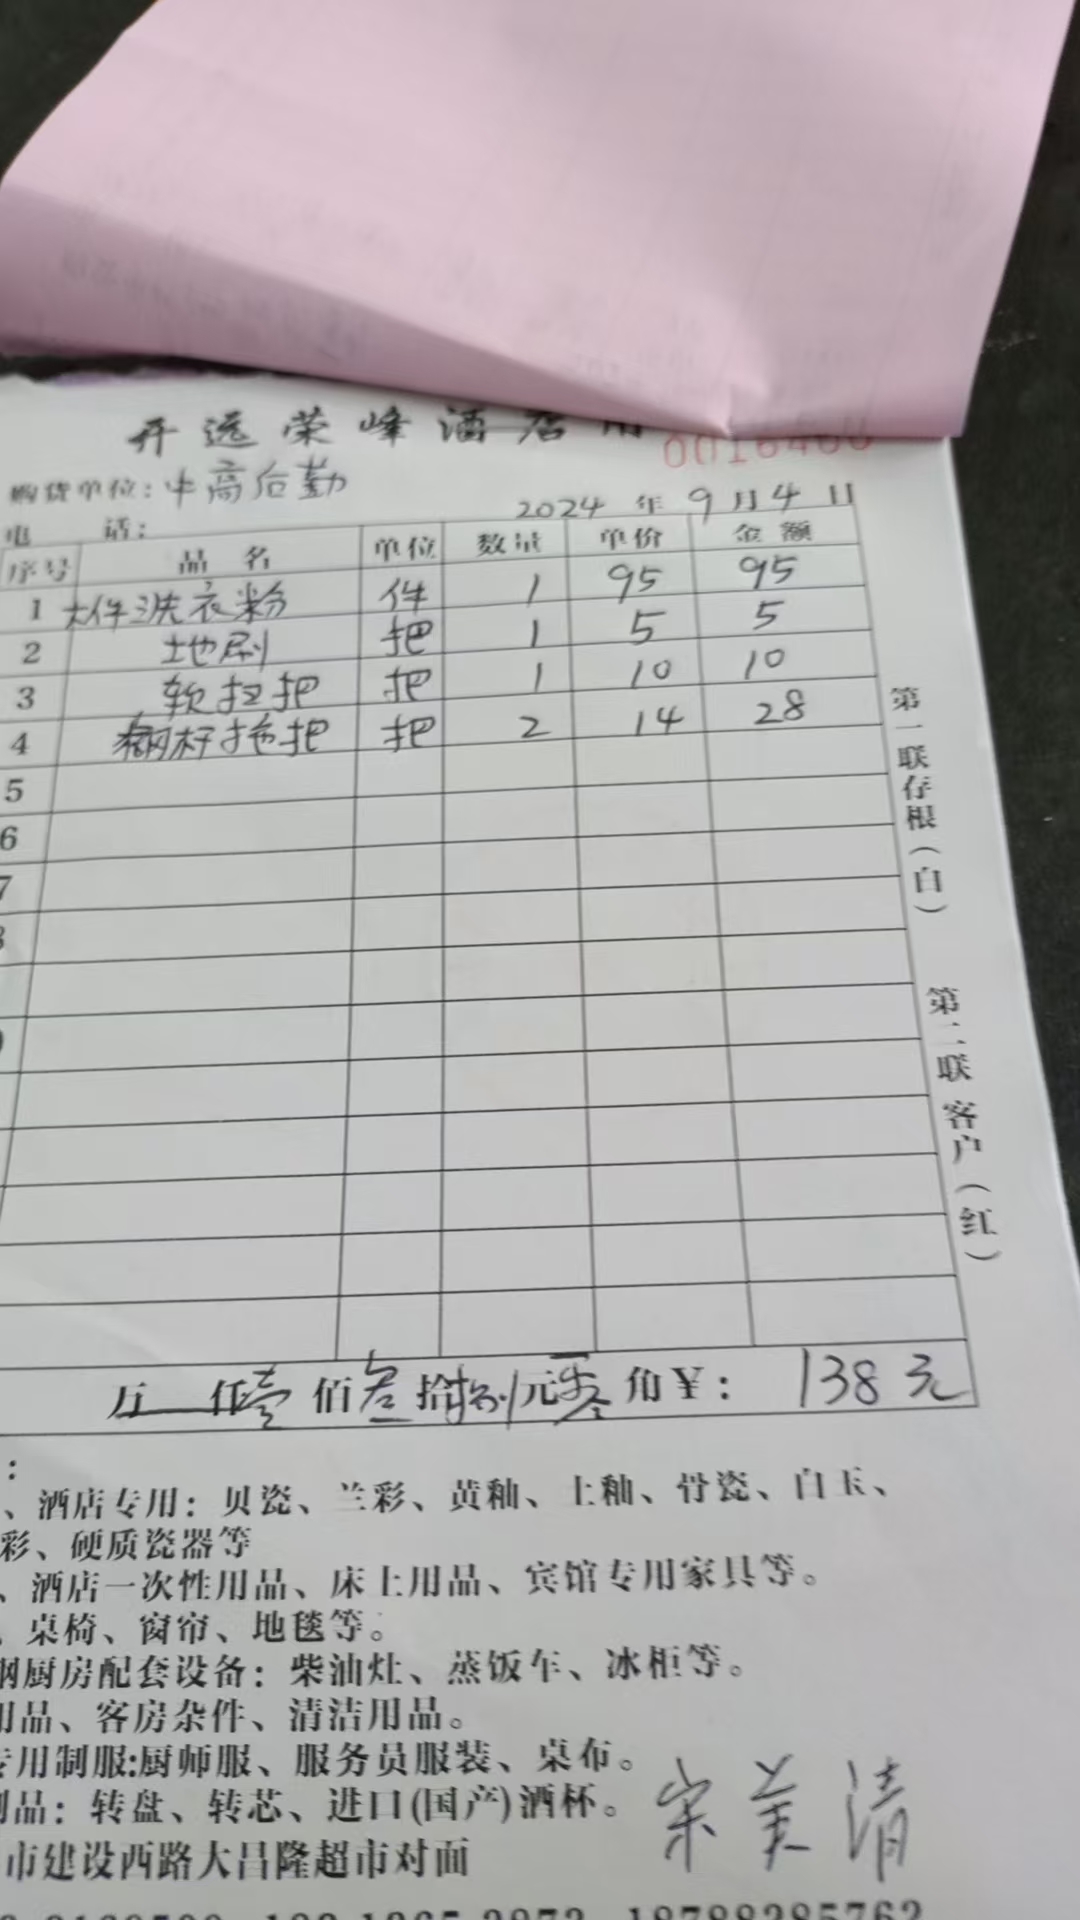 开远荣峰酒店用
0016460
购货单位：中高后勤
2024 年 9 月 4 日
电 话：
序号 品名 单位 数量 单价 金额
1 大件洗衣粉 件 1 95 95
2 地刷 把 1 5 5
3 软扫把 把 1 10 10
4 钢杆拖把 把 2 14 28
5
6
7
8
万 仟 壹 佰 叁 拾 捌 元 零 角 ¥： 138元
第一联存根（白）
第二联客户（红）
：
、酒店专用：贝瓷、兰彩、黄釉、土釉、骨瓷、白玉、
彩、硬质瓷器等
、酒店一次性用品、床上用品、宾馆专用家具等。
、桌椅、窗帘、地毯等。
钢厨房配套设备：柴油灶、蒸饭车、冰柜等。
用品、客房杂件、清洁用品。
专用制服:厨师服、服务员服装、桌布。
制品：转盘、转芯、进口(国产)酒杯。
宋美清
市建设西路大昌隆超市对面
18788285762